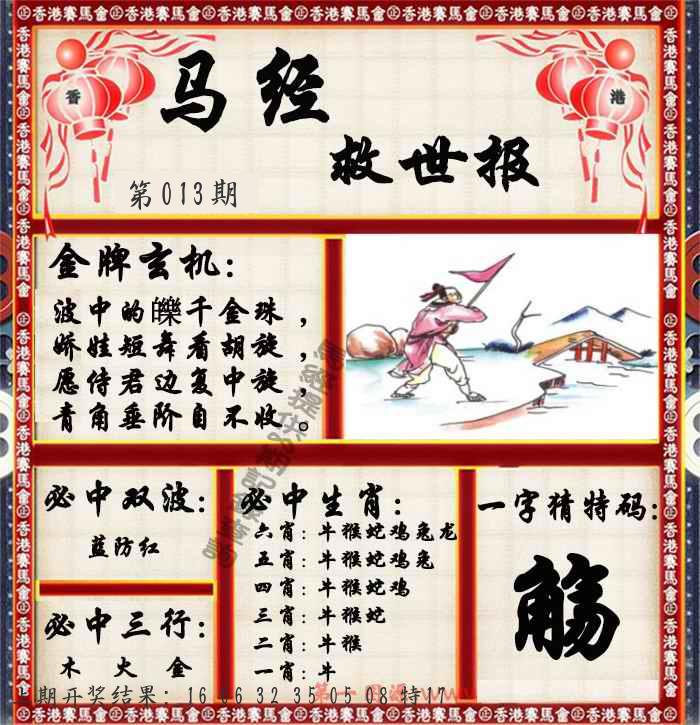 香港賽馬會
马经
救世报
香
港
第013期
金牌玄机:
波中的皪千金珠，
娇娃短舞看胡旋，
愿侍君边复中旋，
青角垂阶自不收。
必中双波:
蓝防红
必中三行:
木 火 金
必中生肖:
六肖:牛猴蛇鸡兔龙
五肖:牛猴蛇鸡兔
四肖:牛猴蛇鸡
三肖:牛猴蛇
二肖:牛猴
一肖:牛
一字猜特码:
觞
期开奖结果: 16 06 32 35 05 08 特17